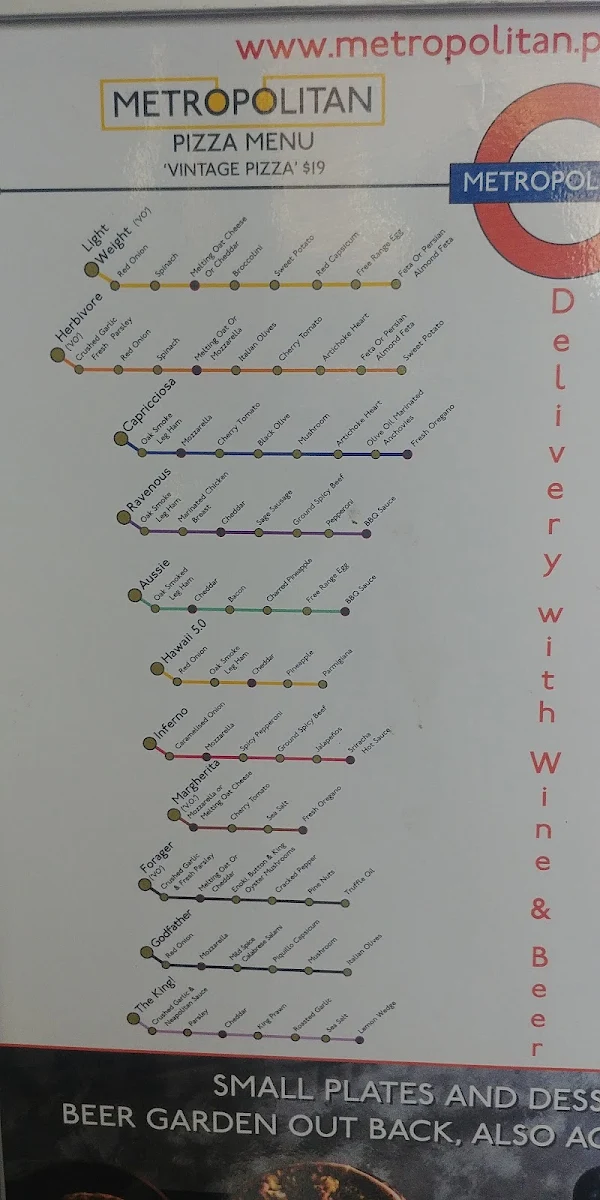 www.metropolitan.p
METROPOLITAN
PIZZA MENU
'VINTAGE PIZZA' $19
METROPOL
Light
Weight (VO)
Red Onion
Spinach
Melting Oat Cheese
Or Cheddar
Broccolini
Sweet Potato
Red Capsicum
Free Range Egg
Feta Or Persian
Almond Feta
Herbivore
(VO)
Crushed Garlic
Fresh Parsley
Red Onion
Spinach
Melting Oat Or
Mozzarella
Italian Olives
Cherry Tomato
Artichoke Heart
Feta Or Persian
Almond Feta
Sweet Potato
Capricciosa
Oak Smoke
Leg Ham
Mozzarella
Cherry Tomato
Black Olive
Mushroom
Artichoke Heart
Olive Oil Marinated
Anchovies
Fresh Oregano
Ravenous
Oak Smoke
Leg Ham
Marinated Chicken
Breast
Cheddar
Sage Sausage
Ground Spicy Beef
Pepperoni
BBQ Sauce
Aussie
Oak Smoked
Leg Ham
Cheddar
Bacon
Charred Pineapple
Free Range Egg
BBQ Sauce
Hawaii 5.0
Red Onion
Oak Smoke
Leg Ham
Cheddar
Pineapple
Parmigiana
Inferno
Caramelised Onion
Mozzarella
Spicy Pepperoni
Ground Spicy Beef
Jalapeños
Sriracha
Hot Sauce
Margherita
(V.O.)
Mozzarella or
Melting Oat Cheese
Cherry Tomato
Sea Salt
Fresh Oregano
Forager
(VO)
Crushed Garlic
& Fresh Parsley
Melting Oat Or
Cheddar
Enoki, Button & King
Oyster Mushrooms
Cracked Pepper
Pine Nuts
Truffle Oil
Godfather
Red Onion
Mozzarella
Mild Spice
Calabrese Salami
Piquillo Capsicum
Mushroom
Italian Olives
The King!
Crushed Garlic &
Neapolitan Sauce
Parsley
Cheddar
King Prawn
Roasted Garlic
Sea Salt
Lemon Wedge
Delivery with Wine & Beer
SMALL PLATES AND DESS
BEER GARDEN OUT BACK, ALSO AC